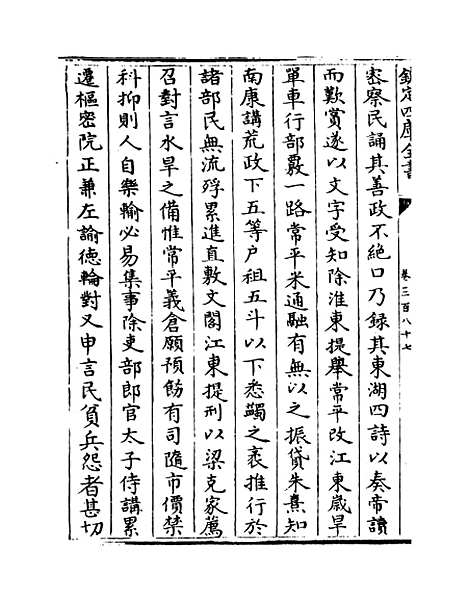 欽定四庫全書
卷三百八十七
密察民誦其善政不絶口乃録其東湖四詩以奏帝讀
而歎賞遂以文字受知除淮東提舉常平改江東歲旱
單車行部覈一路常平米通融有無以之振貸朱熹知
南康講荒政下五等户租五斗以下悉蠲之衮推行於
諸部民無流殍累進直敷文閣江東提刑以梁克家薦
召對言水旱之備惟常平義倉願預飭有司隨市價禁
科抑則人自樂輸必易集事除吏部郎官太子侍講累
遷樞密院正兼左諭徳輪對又申言民貧兵怨者甚切